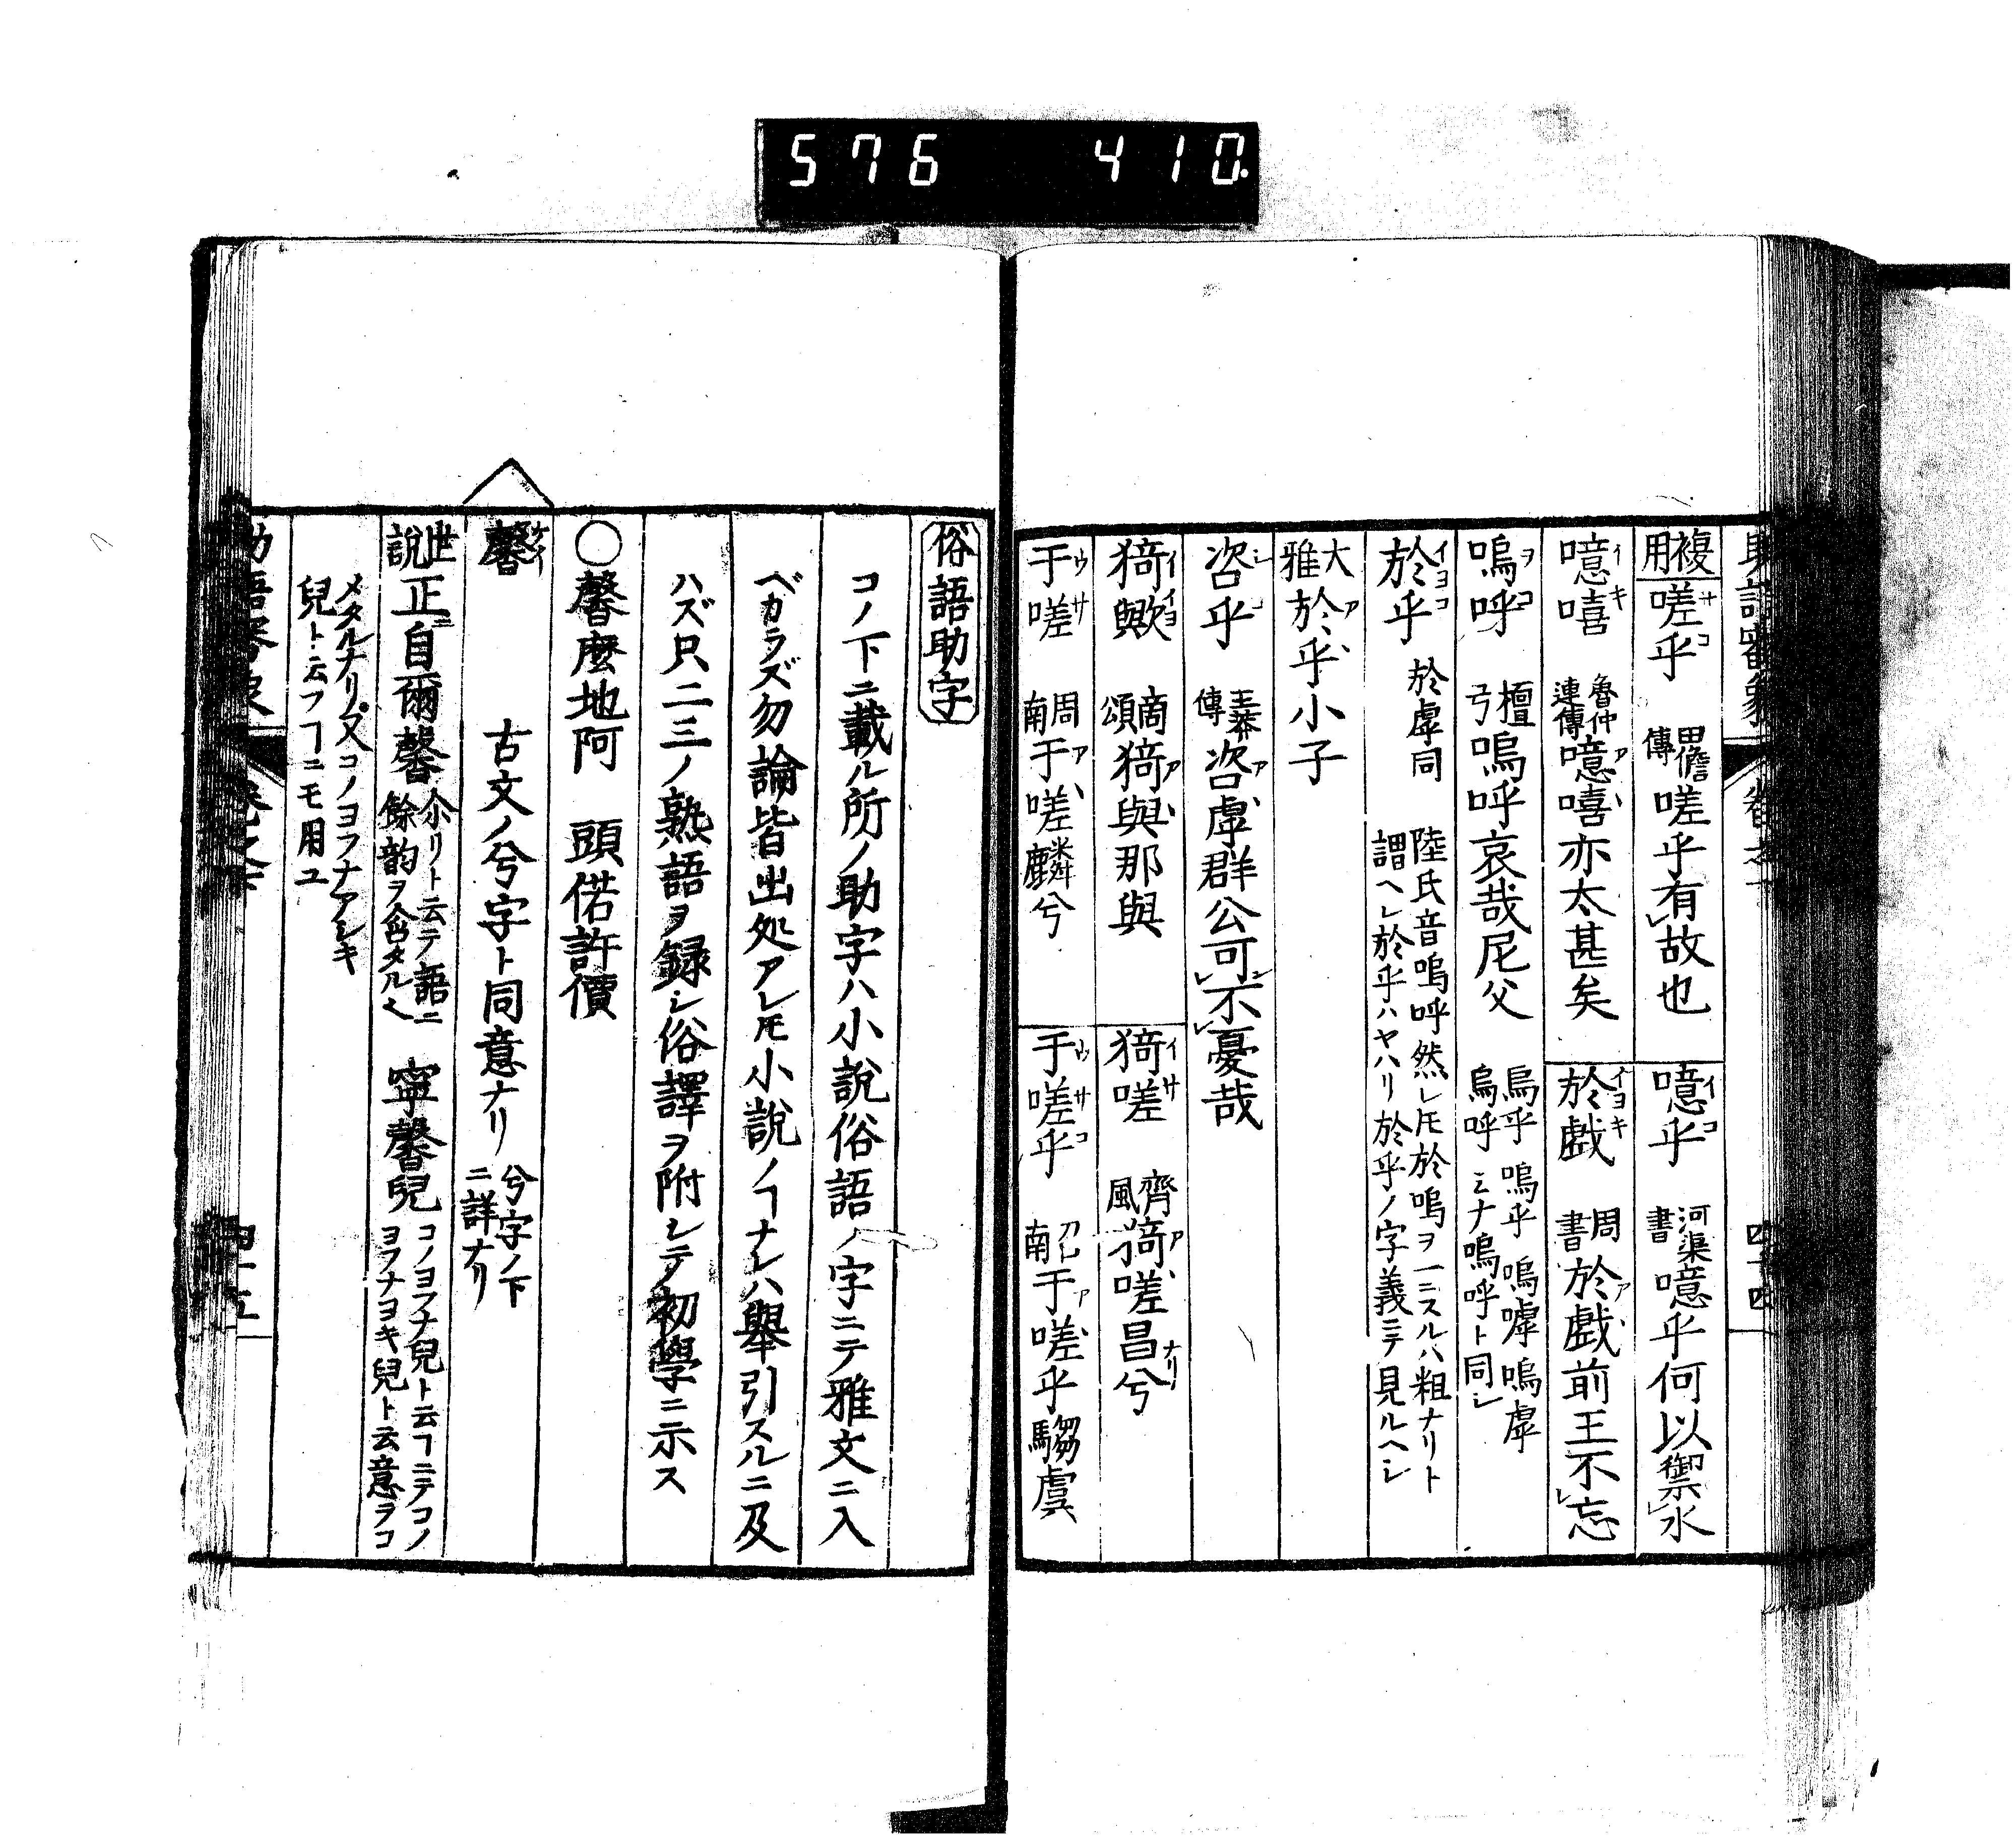 576 410
複用 嗟乎 田儋傳 嗟乎有故也 噫乎 河渠書 噫乎何以禦水
噫嘻 魯仲連傳 噫嘻亦太甚矣 於戲 周書 於戲前王不忘
嗚呼 檀弓 嗚呼哀哉尼父 烏乎 嗚乎 嗚嘑 嗚虖 烏呼ミナ嗚呼ト同シ
於乎 於虖同 陸氏音嗚呼然レㇳモ於嗚ヲ一ニスルハ粗ナリト謂ヘレ於乎ハヤハリ於乎ノ字義ニテ見ルヘシ
大雅 於乎小子
咨乎 王莽傳 咨虖群公可不憂哉
猗歟 商頌 猗與那與 猗嗟 齊風 猗嗟昌兮
于嗟 周南 于嗟麟兮 于嗟乎 召南 于嗟乎騶虞
俗語助字
コノ下ニ載ル所ノ助字ハ小說俗語ノ字ニテ雅文ニ入
ベカラズ勿論皆出処アレㇳモ小說ノヿナレハ舉引スルニ及
ハズ只二三ノ熟語ヲ録シ俗譯ヲ附レテ初學ニ示ス
○馨麼地阿 頭偌許價
馨 古文ノ兮字ト同意ナリ 兮字ノ下ニ詳ナリ
世說 正自爾馨 尒リト云テ語ニ餘韵ヲ含タルヘ 寧馨兒 コノヨフナ兒ト云ヿニテコノヨフナヨキ兒ト云意ヲコ
メタルナリ又コノヨフナアシキ
兒ト云フヿニモ用ユ